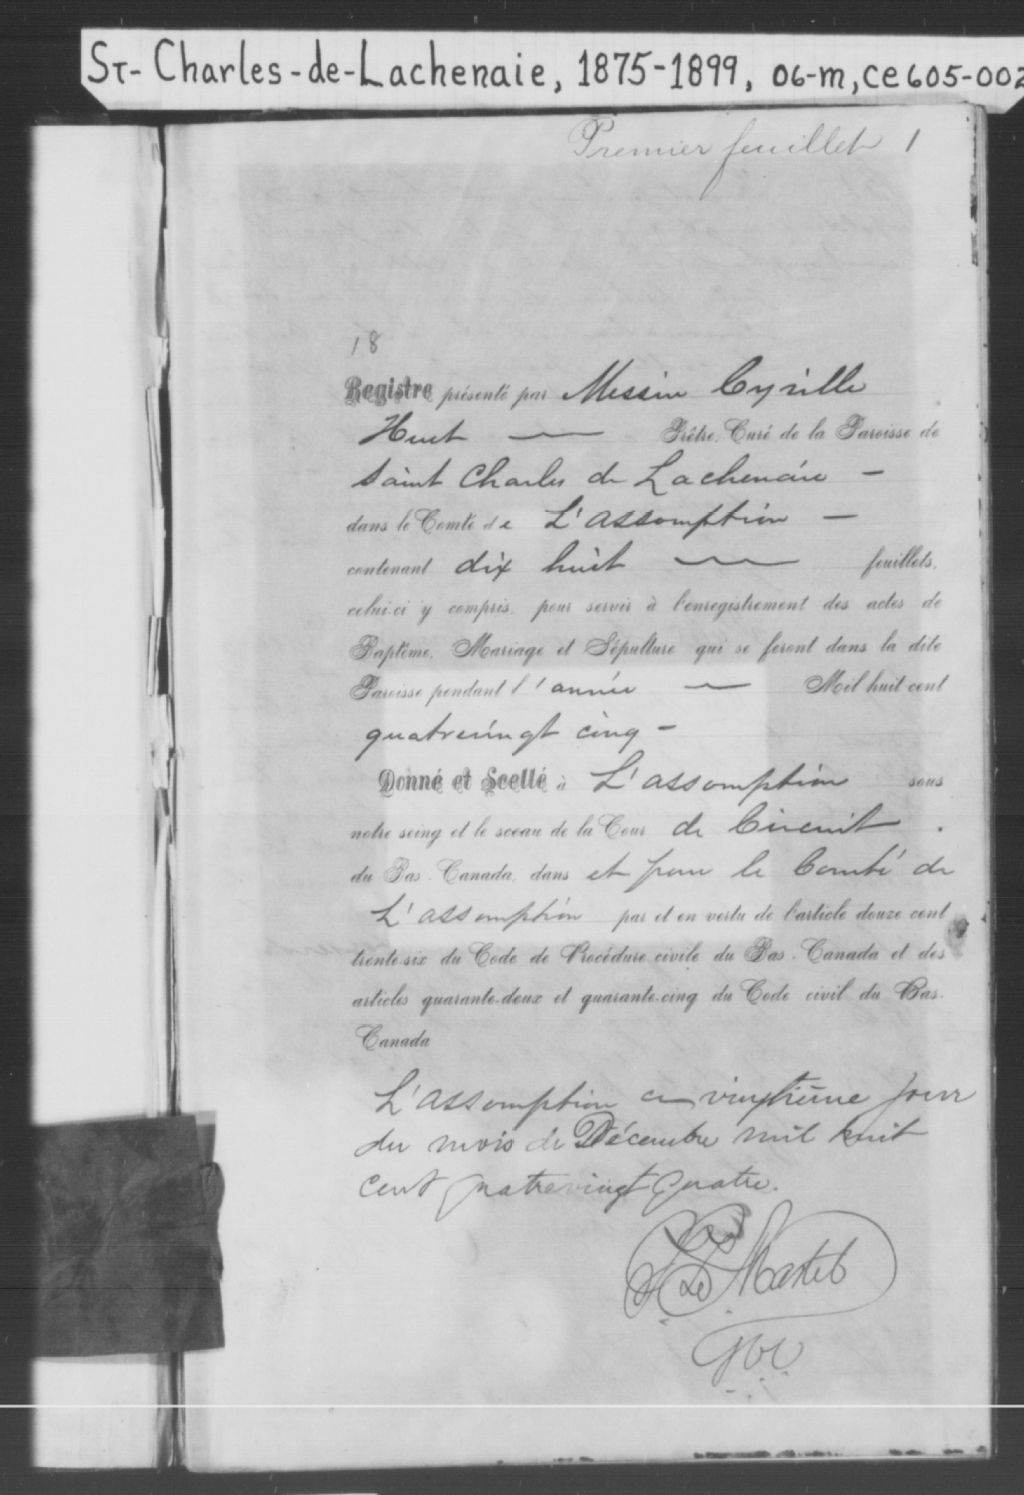 St-Charles-de-Lachenaie, 1875-1899, 06-m, ce605-002
Premier feuillet 1
18
Registre présenté par Messire Cyrille
Huet — Prêtre, Curé de la Paroisse de
Saint Charles de Lachenaie –
dans le Comté de L'assomption –
contenant dix huit — feuillets,
celui-ci y compris, pour servir à l'enregistrement des actes de
Baptême, Mariage et Sépulture qui se feront dans la dite
Paroisse pendant l'année — Mil huit cent
quatrevingt cinq –
Donné et Scellé à L'assomption sous
notre seing et le sceau de la Cour de Circuit .
du Bas-Canada, dans et pour le Comté de
L'assomption par et en vertu de l'article douze cent
trente-six du Code de Procédure civile du Bas-Canada et des
articles quarante-deux et quarante-cinq du Code civil du Bas-
Canada
L'assomption ce vingtième jour
du mois de Décembre mil huit
cent quatrevingt quatre.
Martel